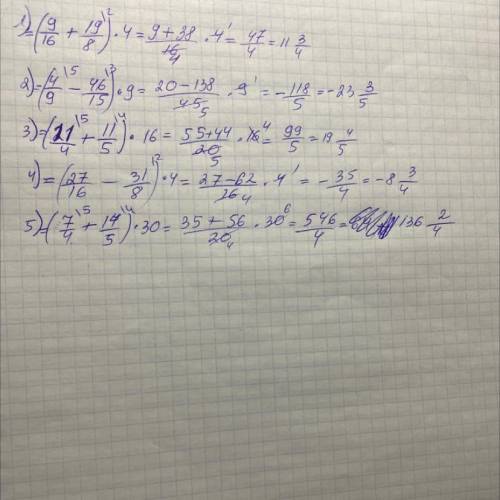 1) = (9/16 + 19/8 \2) · 4 = 9+38/16 4 · 4 1 = 47/4 = 11 3/4
2) = (4/9 \5 − 46/15 \3) · 9 = 20−138/45 5 · 9 1 = −118/5 = −23 3/5
3) = (21/4 \5 + 11/5 \4) · 16 = 55+44/20 5 · 16 4 = 99/5 = 19 4/5
4) = (27/16 − 31/8 \2) · 4 = 27−62/16 4 · 4 1 = −35/4 = −8 3/4
5) = (7/4 \5 + 14/5 \4) · 30 = 35+56/20 4 · 30 6 = 546/4 = 136 2/4